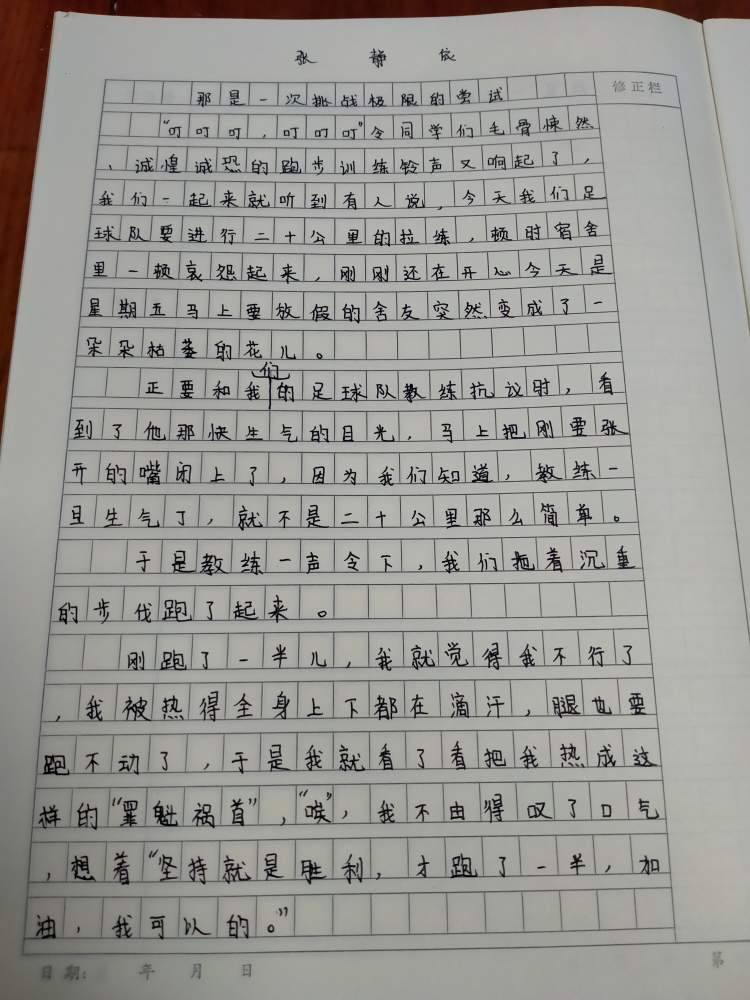 张静依
修正栏
那是一次挑战极限的尝试
“叮叮叮，叮叮叮”令同学们毛骨悚然
、诚煌诚恐的跑步训练铃声又响起了，
我们一起来就听到有人说，今天我们足
球队要进行二十公里的拉练，顿时宿舍
里一顿哀怨起来，刚刚还在开心今天是
星期五马上要放假的舍友突然变成了一
朵朵枯萎的花儿。
正要和我们的足球队教练抗议时，看
到了他那快生气的目光，马上把刚要张
开的嘴闭上了，因为我们知道，教练一
旦生气了，就不是二十公里那么简单。
于是教练一声令下，我们拖着沉重
的步伐跑了起来。
刚跑了一半儿，我就觉得我不行了
，我被热得全身上下都在滴汗，腿也要
跑不动了，于是我就看了看把我热成这
样的“罪魁祸首”，“唉”，我不由得叹了口气
，想着“坚持就是胜利，才跑了一半，加
油，我可以的。”
日期： 年 月 日
第